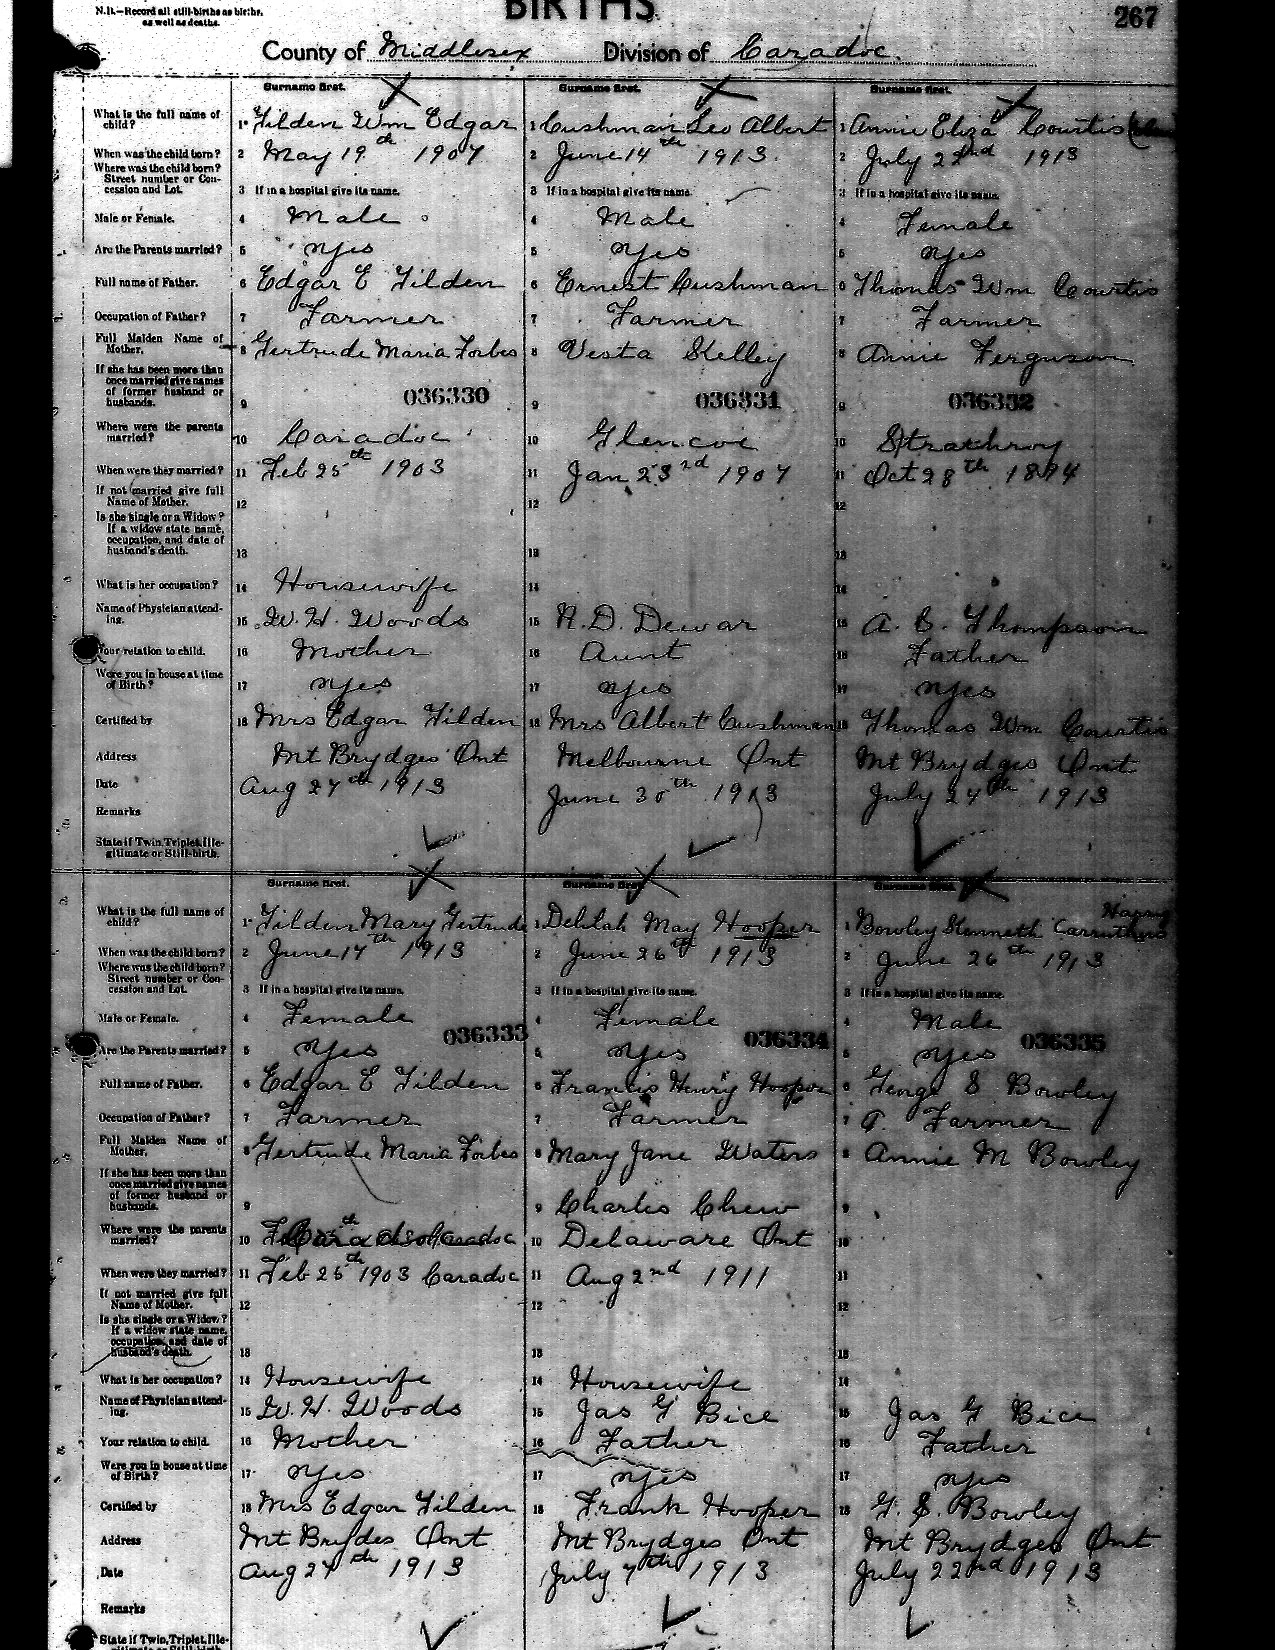 N.B.—Record all still-births as births, as well as deaths.
BIRTHS
267
County of Middlesex Division of Caradoc.
Surname first. Surname first. Surname first.
What is the full name of child? 1 Tilden Wm Edgar 1 Cushman Leo Albert 1 Annie Eliza Courtis
When was the child born? 2 May 19th 1907 2 June 14th 1913. 2 July 22nd 1913
Where was the child born? Street number or Concession and Lot. 3 If in a hospital give its name. 3 If in a hospital give its name. 3 If in a hospital give its name.
Male or Female. 4 Male 4 Male 4 Female
Are the Parents married? 5 yes 5 yes 5 yes
Full name of Father. 6 Edgar E Tilden 6 Ernest Cushman 6 Thomas Wm Courtis
Occupation of Father? 7 Farmer 7 Farmer 7 Farmer
Full Maiden Name of Mother. 8 Gertrude Maria Forbes 8 Vesta Skelley 8 Annie Ferguson
If she has been more than once married give names of former husband or husbands. 9 036330 9 036331 9 036332
Where were the parents married? 10 Caradoc 10 Glencoe 10 Strathroy
When were they married? 11 Feb 25th 1903 11 Jan 23rd 1907 11 Oct 28th 1894
If not married give full Name of Mother. 12 12 12
Is she single or a Widow? If a widow state name, occupation, and date of husband's death. 13 13 13
What is her occupation? 14 Housewife 14 14
Name of Physician attending. 15 W. H. Woods 15 N. D. Dewar 15 A. C. Thompson
Your relation to child. 16 Mother 16 Aunt 16 Father
Were you in house at time of Birth? 17 yes 17 yes 17 yes
Certified by 18 Mrs Edgar Tilden 18 Mrs Albert Cushman 18 Thomas Wm Courtis
Address Mt Brydges Ont Melbourne Ont Mt Brydges Ont
Date Aug 27th 1913 June 30th 1913 July 24th 1913
Remarks
State if Twin, Triplet, Illegitimate or Still-birth.
Surname first. Surname first. Surname first.
What is the full name of child? 1 Tilden Mary Gertrude 1 Delilah May Hooper 1 Bowley Kenneth Carruthers Harry
When was the child born? 2 June 17th 1913 2 June 26th 1913 2 June 26th 1913
Where was the child born? Street number or Concession and Lot. 3 If in a hospital give its name. 3 If in a hospital give its name. 3 If in a hospital give its name.
Male or Female. 4 Female 4 Female 4 Male
036333 036334 036335
Are the Parents married? 5 yes 5 yes 5 yes
Full name of Father. 6 Edgar E Tilden 6 Francis Henry Hooper 6 George S Bowley
Occupation of Father? 7 Farmer 7 Farmer 7 A. Farmer
Full Maiden Name of Mother. 8 Gertrude Maria Forbes 8 Mary Jane Waters 8 Annie M Bowley
If she has been more than once married give names of former husband or husbands. 9 9 Charles Chew 9
Where were the parents married? 10 Caradoc 10 Delaware Ont 10
When were they married? 11 Feb 25th 1903 Caradoc 11 Aug 2nd 1911 11
If not married give full Name of Mother. 12 12 12
Is she single or a Widow? If a widow state name, occupation, and date of husband's death. 13 13 13
What is her occupation? 14 Housewife 14 Housewife 14
Name of Physician attending. 15 W. H. Woods 15 Jas G Bice 15 Jas G Bice
Your relation to child. 16 Mother 16 Father 16 Father
Were you in house at time of Birth? 17 yes 17 yes 17 yes
Certified by 18 Mrs Edgar Tilden 18 Frank Hooper 18 G. S. Bowley
Address Mt Brydes Ont Mt Brydges Ont Mt Brydges Ont
Date Aug 27th 1913 July 7th 1913 July 22nd 1913
Remarks
State if Twin, Triplet, Ille-